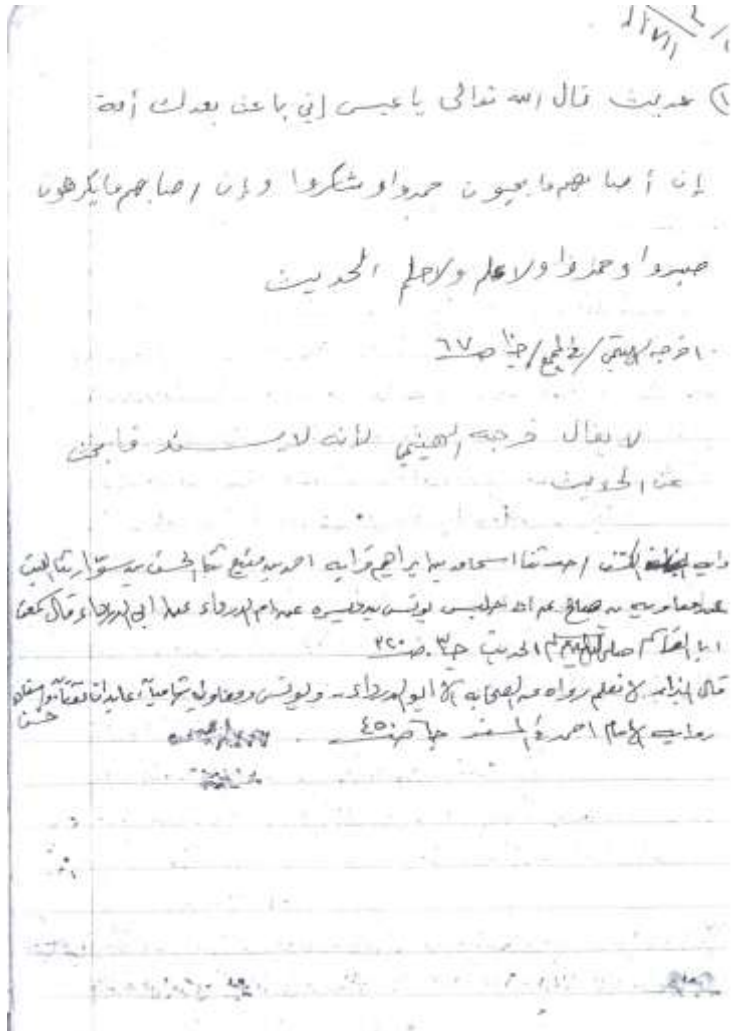 ١) حديث قال الله تعالى يا عيسى إني باعث بعدك أمة
إن أصابهم ما يحبون حمدوا وشكروا وإن أصابهم ما يكرهون
صبروا و ولا علم ولا حلم الحديث
اخرجه الهيثمي / في المجمع / جـ١٠ صـ٦٧
لا يقال خرجه الهيثمي لأنه لا يسند فابحث
عن الحديث
الكشف حدثنا اسحاق بن ابراهيم احمد بن منيع ثنا الحسن بن سوار ثنا الليث
عن معاوية بن صالح عن ابي حلبس يونس بن ميسرة عن ام الدرداء عن ابي الدرداء قال سمعت
ابا القاسم صلى الله عليه وسلم الحديث جـ٣ صـ٣٢٠
قال البزار لا نعلم رواه من الصحابة إلا ابو الدرداء ويونس ومعاوية شاميان عابدان ثقتان وإسناده
حسن
رواية الإمام احمد في المسند جـ٦ صـ٤٥٠